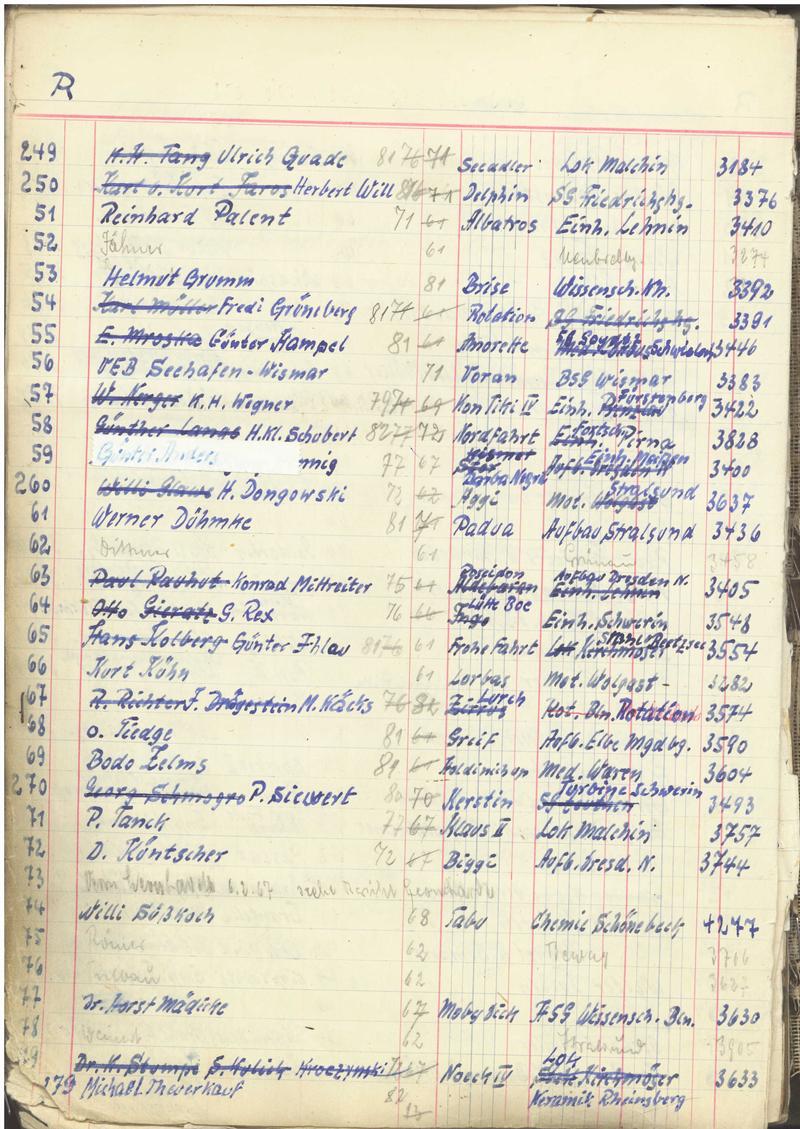 R
249 K.H. Tang Ulrich Quade 81 76 71 Seeadler Lok Malchin 3184
250 Karl u. Kurt Faros Herbert Will 71 Delphin SG Friedrichshg. 3376
51 Reinhard Palent 71 61 Albatros Einh. Lehnin 3410
52 Jähner 61 3274
53 Helmut Grumm 81 Brise Wissensch. Nh. 3392
54 Karl Müller Fredi Grüneberg 81 71 61 Rotation SG Friedrichshg. 3391
55 E. Mroska Günter Hampel 81 61 Annette 3446
56 VEB Seehafen-Wismar 71 Voran BSG Wismar 3383
Fürstenberg
57 W. Nerger K.H. Wegner 79 71 69 KonTiki IV Einh. 3422
58 Günther Lange H.Kl. Schubert 82 77 72 Nordfahrt Einh. Pirna 3828
Wismar Einh. Meißen
59 Günter Anders nnig 77 67 Stör Aufb. Dresden N 3400
Barba Negra Stralsund
260 Willi Klaws H. Dongowski 72 62 Aggi Mot. Wolgast 3637
61 Werner Dühmke 81 71 Padua Aufbau Stralsund 3436
62 Dittmer 61 Grünau 3458
Poseidon Aufbau Dresden N.
63 Paul Pauhut Konrad Mittreiter 75 61 Aldebaran Einh. Lehnin 3405
Lütte Boe
64 Otto Gieratz G. Rex 76 66 Ingo Einh. Schwerin 3548
65 Hans Kolberg Günter Ihlau 81 76 61 Frohe Fahrt Lok Kirchmöser 3554
66 Kurt Kühn 61 Lorbas Mot. Wolgast - 3282
Lurch
67 R. Richter J. Drägestein M. Käcks 76 82 Zitros Rot. Bln. Rotation 3574
68 O. Tiedge 81 61 Greif Aufb. Elbe Mgdbg. 3590
69 Bodo Zelms 89 61 Med. Waren 3604
Turbine Schwerin
270 Georg Schmogro P. Siewert 80 70 Kerstin 3493
71 P. Tanck 77 67 Klaus II Lok Malchin 3757
72 D. Küntscher 72 67 Biggi Aufb. Dresd. N. 3744
73 Vom 6.2.67 siehe
74 Willi Süßkoch 68 Tabu Chemie Schönebeck 4277
75 Römer 62 3716
76 62 3627
77 Dr. Horst Mädicke 67 Moby Dick HSG Wissensch. Bln. 3630
78 62 Stralsund 3905
Lok
79 Dr. K. Stumpe S. Kulich Kroczynski 67 Noeck IV Kirchmöser 3633
279 Michael Theuerkauf 82 Keramik Rheinsberg